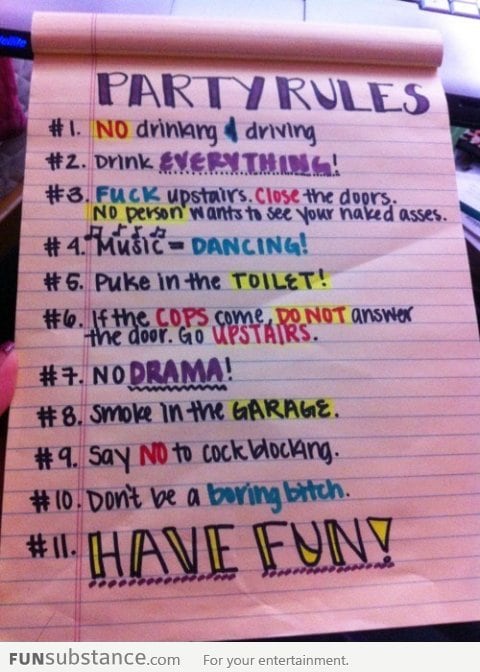 PARTY RULES
#1. NO drinking & driving
#2. Drink EVERYTHING!
#3. FUCK upstairs. Close the doors.
No person wants to see your naked asses.
#4. Music = DANCING!
#5. Puke in the TOILET!
#6. If the COPS come, DO NOT answer
the door. Go UPSTAIRS.
#7. NO DRAMA!
#8. Smoke in the GARAGE.
#9. Say NO to cockblocking.
#10. Don't be a boring bitch.
#11. HAVE FUN!
FUNsubstance.com For your entertainment.